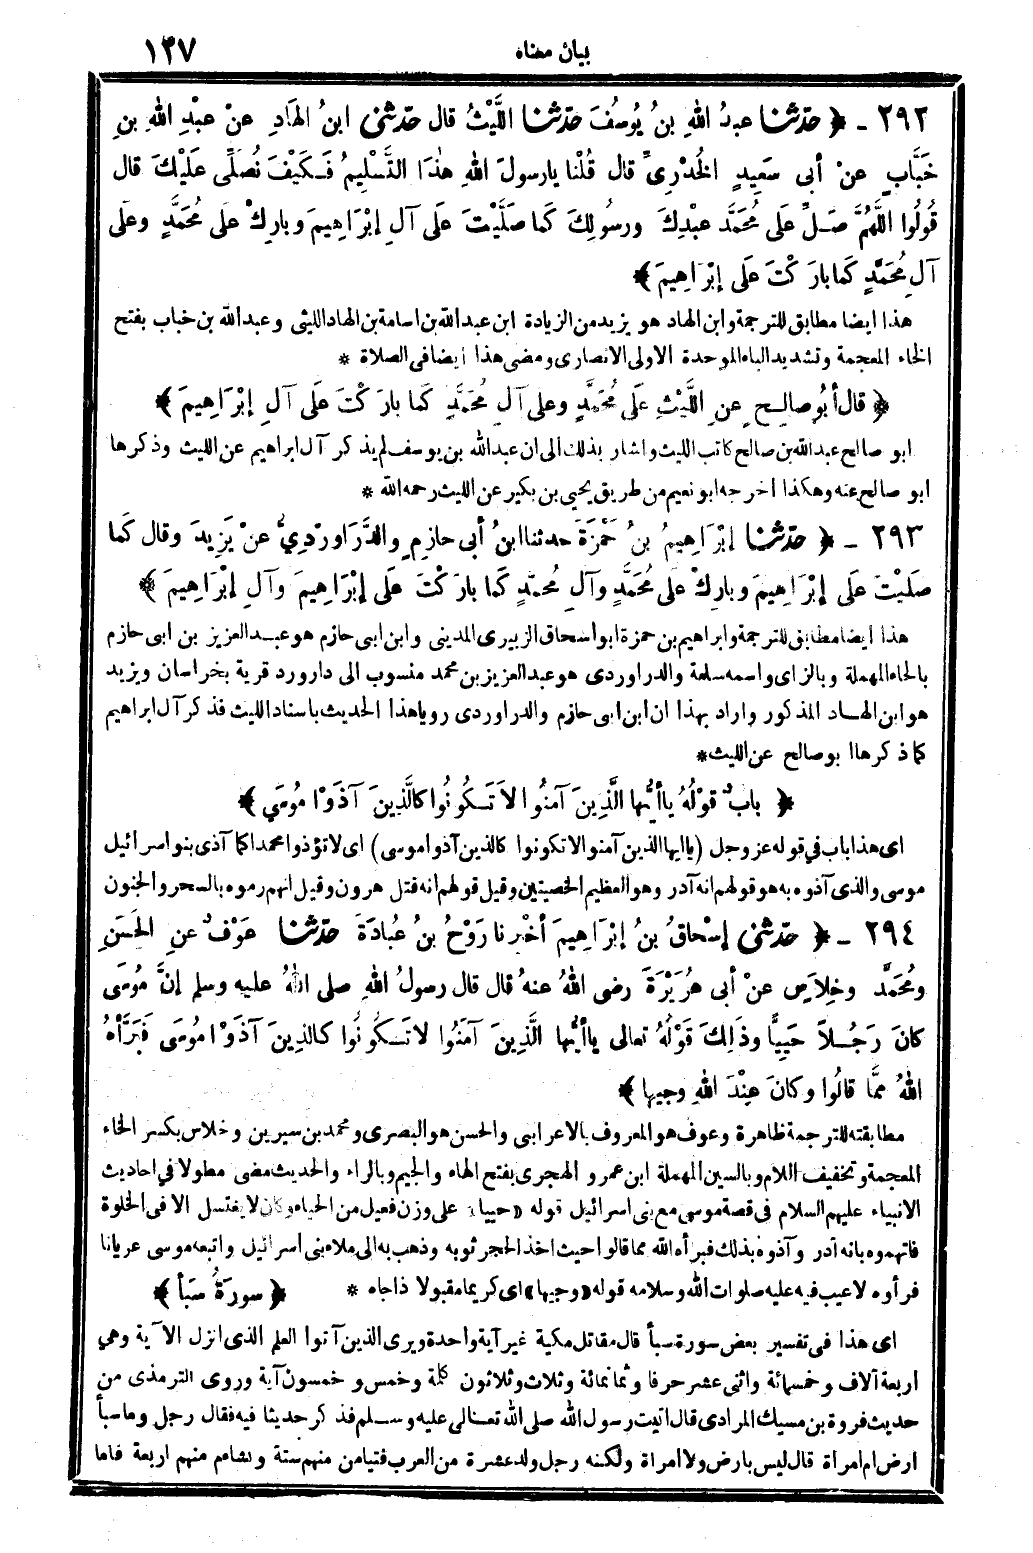 بيان معناه ١٢٧
٢٩٢ - ﴿ حَدَّثَنَا عبدُ اللهِ بنُ يُوسُفَ حَدَّثَنَا اللَّيْثُ قال حَدَّثَنِي ابنُ الهَادِ عنْ عبْدِ اللهِ بنِ
خَبَّابٍ عنْ أبِي سَعِيدٍ الخُدْرِيِّ قال قُلْنا يا رسولَ اللهِ هٰذَا التَّسْلِيمُ فَكَيْفَ نُصَلِّي عَلَيْكَ قال
قُولُوا اللَّهُمَّ صَلِّ عَلَى مُحَمَّدٍ عبْدِكَ ورسُولِكَ كمَا صَلَّيْتَ عَلَى آلِ إبْرَاهِيمَ وبارِكْ عَلَى مُحَمَّدٍ وعلَى
آلِ مُحَمَّدٍ كمَا بارَكْتَ عَلَى إبْرَاهِيمَ ﴾
هذا ايضا مطابق للترجمة وابن الهاد هو يزيد من الزيادة ابن عبدالله بن اسامة بن الهاد الليثى وعبدالله بن خباب بفتح
الخاء المعجمة وتشديد الباء الموحدة الاولى الانصارى ومضى هذا ايضا فى الصلاة *
﴿ قال أبُو صالِحٍ عنِ اللَّيْثِ علَى مُحَمَّدٍ وعلى آلِ مُحَمَّدٍ كمَا بارَكْتَ عَلَى آلِ إبْرَاهِيمَ ﴾
ابو صالح عبدالله بن صالح كاتب الليث واشار بذلك الى ان عبدالله بن يوسف لم يذكر آل ابراهيم عن الليث وذكرها
ابو صالح عنه وهكذا اخرجه ابو نعيم من طريق يحيى بن بكير عن الليث رحمه الله *
٢٩٣ - ﴿ حَدَّثَنَا إبْرَاهِيمُ بنُ حَمْزَةَ حدثنا ابنُ أبى حازِمٍ والدَّرَاوَرْدِيُّ عنْ يَزِيدَ وقال كمَا
صَلَّيْتَ عَلَى إبْرَاهِيمَ وبارِكْ علَى مُحَمَّدٍ وآلِ مُحمَّدٍ كمَا بارَكْتَ عَلَى إبْرَاهِيمَ وآلِ إبْرَاهِيمَ ﴾
هذا ايضا مطابق للترجمة وابراهيم بن حمزة ابو اسحاق الزبيرى المدينى وابن ابى حازم هو عبد العزيز بن ابى حازم
بالحاء المهملة وبالزاى واسمه سلمة والدراوردى هو عبد العزيز بن محمد منسوب الى داورد قرية بخراسان ويزيد
هو ابن الهاد المذكور واراد بهذا ان ابن ابى حازم والدراوردى رويا هذا الحديث باسناد الليث فذكر آل ابراهيم
كما ذكرها ابو صالح عن الليث *
﴿ بابٌ قوْلُهُ يا أيُّها الَّذِينَ آمَنُوا لاَ تَكُونُوا كالَّذِينَ آذَوْا مُوسَى ﴾
اى هذا باب فى قوله عز وجل (يا ايها الذين آمنوا لا تكونوا كالذين آذوا موسى) اى لا تؤذوا محمدا كما آذى بنو اسرائيل
موسى والذى آذوه به هو قولهم انه آدر وهو العظيم الخصيتين وقيل قولهم انه قتل هرون وقيل انهم رموه بالسحر والجنون
٢٩٤ - ﴿ حَدَّثَنِي إسْحاقُ بنُ إبْرَاهِيمَ أخْبرنا رَوْحُ بنُ عُبادَةَ حَدَّثَنَا عَوْفٌ عنِ الحَسَنِ
ومُحَمَّدٍ وخِلاَسٍ عنْ أبى هُرَيْرَةَ رضى اللهُ عنهُ قال قال رسولُ اللهِ صلى اللهُ عليه وسلم إنَّ مُوسَى
كانَ رَجُلاً حَيِيًّا وذٰلِكَ قَوْلُهُ تعالى يا أيُّها الَّذِينَ آمَنُوا لا تَكُونُوا كالَّذِينَ آذَوْا مُوسَى فَبَرَّأهُ
اللهُ مِمَّا قالُوا وكانَ عِنْدَ اللهِ وجِيها ﴾
مطابقته للترجمة ظاهرة وعوف هو المعروف بالاعرابى والحسن هو البصرى ومحمد بن سيرين وخلاس بكسر الخاء
المعجمة وتخفيف اللام وبالسين المهملة ابن عمرو الهجرى بفتح الهاء والجيم وبالراء والحديث مضى مطولا فى احاديث
الانبياء عليهم السلام فى قصة موسى مع بنى اسرائيل قوله «حييا» على وزن فعيل من الحياء وكان لا يغتسل الا فى الخلوة
فاتهموه بانه آدر وآذوه بذلك فبرأه الله مما قالوا حيث اخذ الحجر ثوبه وذهب به الى ملاء بنى اسرائيل واتبعه موسى عريانا
فرأوه لا عيب فيه عليه صلوات الله وسلامه قوله «وجيها» اى كريما مقبولا ذا جاه * ﴿ سورَةُ سَبَأ ﴾
اى هذا فى تفسير بعض سورة سبأ قال مقاتل مكية غير آية واحدة ويرى الذين آتوا العلم الذى انزل الآية وهى
اربعة آلاف وخمسمائة واثنى عشر حرفا وثمانمائة وثلاث وثلاثون كلمة وخمس وخمسون آية وروى الترمذى من
حديث فروة بن مسيك المرادى قال اتيت رسول الله صلى الله تعالى عليه وسلم فذكر حديثا فيه فقال رجل وما سبأ
ارض ام امرأة قال ليس بارض ولا امرأة ولكنه رجل ولد عشرة من العرب فتيامن منهم ستة وتشامم منهم اربعة فاما